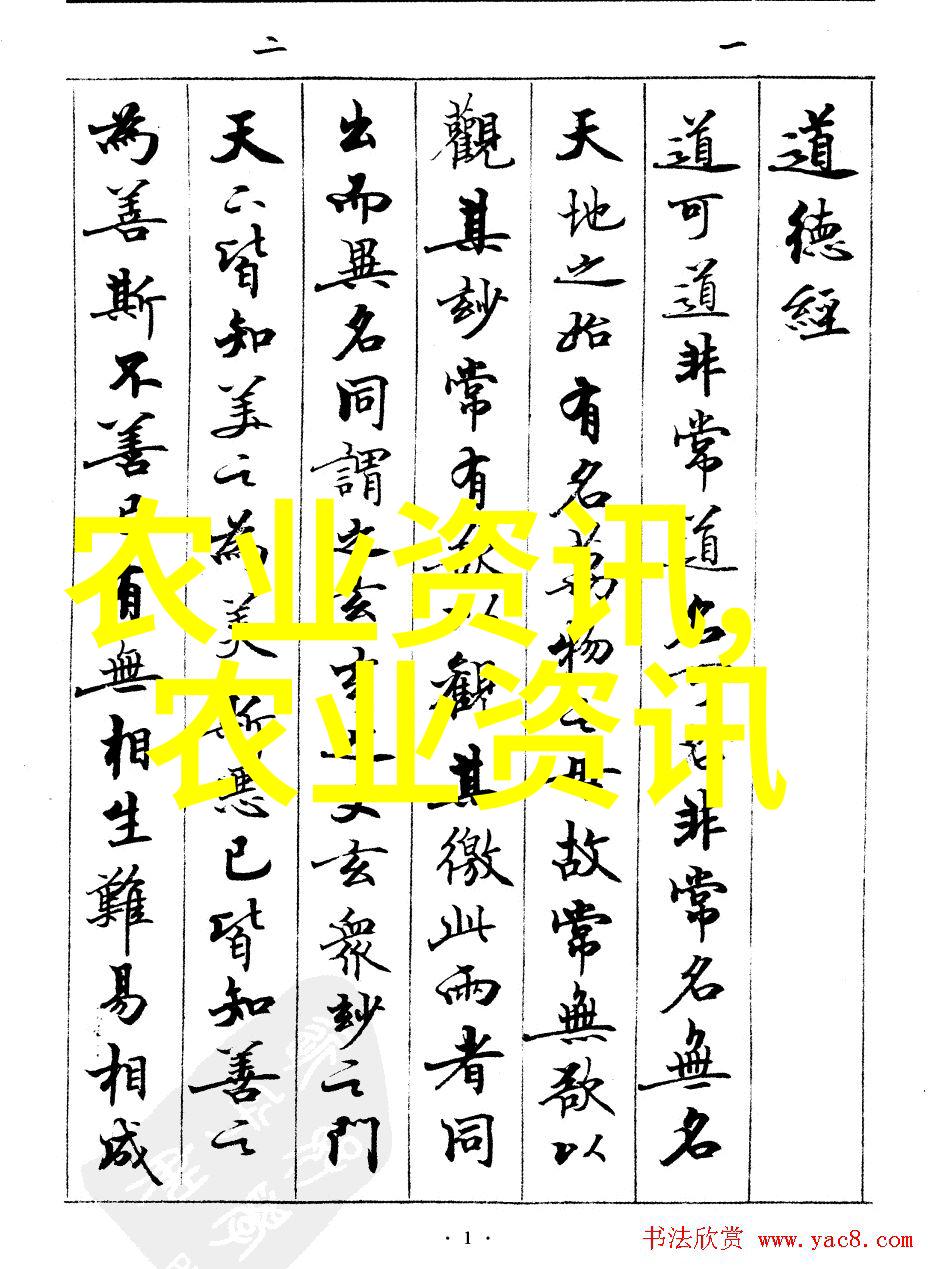 一
二
道德經
道可道非常道名可名非常名無名
天地之始有名萬物之母故常無欲以
觀其玅常有欲以觀其徼此兩者同
出而異名同謂之玄玄之又玄衆玅之門
天下皆知美之為美斯惡已皆知善之
為善斯不善已有無相生難易相成
农业资讯,
农业资讯
· 1 ·
书法欣赏 www.yac8.com